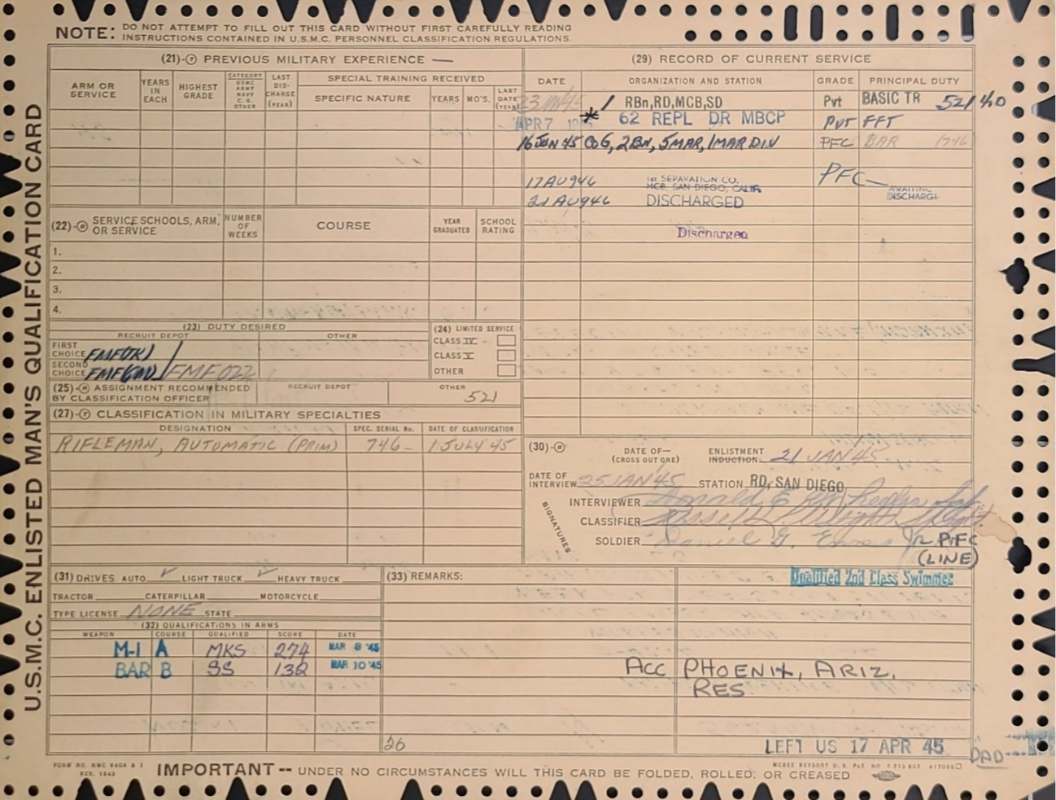 NOTE: DO NOT ATTEMPT TO FILL OUT THIS CARD WITHOUT FIRST CAREFULLY READING
INSTRUCTIONS CONTAINED IN U.S.M.C. PERSONNEL CLASSIFICATION REGULATIONS.
U.S.M.C. ENLISTED MAN'S QUALIFICATION CARD
(21)-P PREVIOUS MILITARY EXPERIENCE —
ARM OR SERVICE YEARS IN EACH HIGHEST GRADE CATEGORY USMC ARMY NAVY C.G. OTHER LAST DIS- CHARGE (YEAR) SPECIAL TRAINING RECEIVED
SPECIFIC NATURE YEARS MO'S. LAST DATE (YEAR)
(29) RECORD OF CURRENT SERVICE
DATE ORGANIZATION AND STATION GRADE PRINCIPAL DUTY
RBn, RD, MCB, SD Pvt BASIC TR 521 40
APR 7 * 62 REPL DR MBCP Pvt FFT
16 JUN 45 Co G, 2BN, 5 MAR, 1 MAR DIV PFC BAR 1746
17 AUG 46 SEPARATION CO, MCB, SAN DIEGO, CALIF. PFC AWAITING DISCHARGE
21 AUG 46 DISCHARGED
Discharged
(22)- SERVICE SCHOOLS, ARM, OR SERVICE NUMBER OF WEEKS COURSE YEAR GRADUATED SCHOOL RATING
1.
2.
3.
4.
(23) DUTY DESIRED
RECRUIT DEPOT OTHER
FIRST CHOICE
SECOND CHOICE FMF 022
(24) LIMITED SERVICE
CLASS IV -
CLASS V
OTHER
(25)- ASSIGNMENT RECOMMENDED BY CLASSIFICATION OFFICER RECRUIT DEPOT OTHER
521
(27)-P CLASSIFICATION IN MILITARY SPECIALTIES
DESIGNATION SPEC. SERIAL No. DATE OF CLASSIFICATION
RIFLEMAN, AUTOMATIC (PRIM) 746 - 1 JULY 45
(30)- DATE OF— (CROSS OUT ONE) ENLISTMENT INDUCTION 21 JAN 45
DATE OF INTERVIEW 25 JAN 45 STATION RD, SAN DIEGO
SIGNATURES
INTERVIEWER
CLASSIFIER
SOLDIER Daniel G. Evans Jr. PVT PFC
(LINE)
(31) DRIVES AUTO ✓ LIGHT TRUCK ✓ HEAVY TRUCK
TRACTOR CATERPILLAR MOTORCYCLE
TYPE LICENSE NONE STATE
(32) QUALIFICATIONS IN ARMS
WEAPON COURSE QUALIFIED SCORE DATE
M-1 A MKS 274 MAR 8 '45
BAR B SS 132 MAR 10 '45
(33) REMARKS:
Qualified 2nd Class Swimmer
Acc PHOENIX, ARIZ.
RES
26
LEFT US 17 APR 45
DAD
IMPORTANT -- UNDER NO CIRCUMSTANCES WILL THIS CARD BE FOLDED, ROLLED, OR CREASED